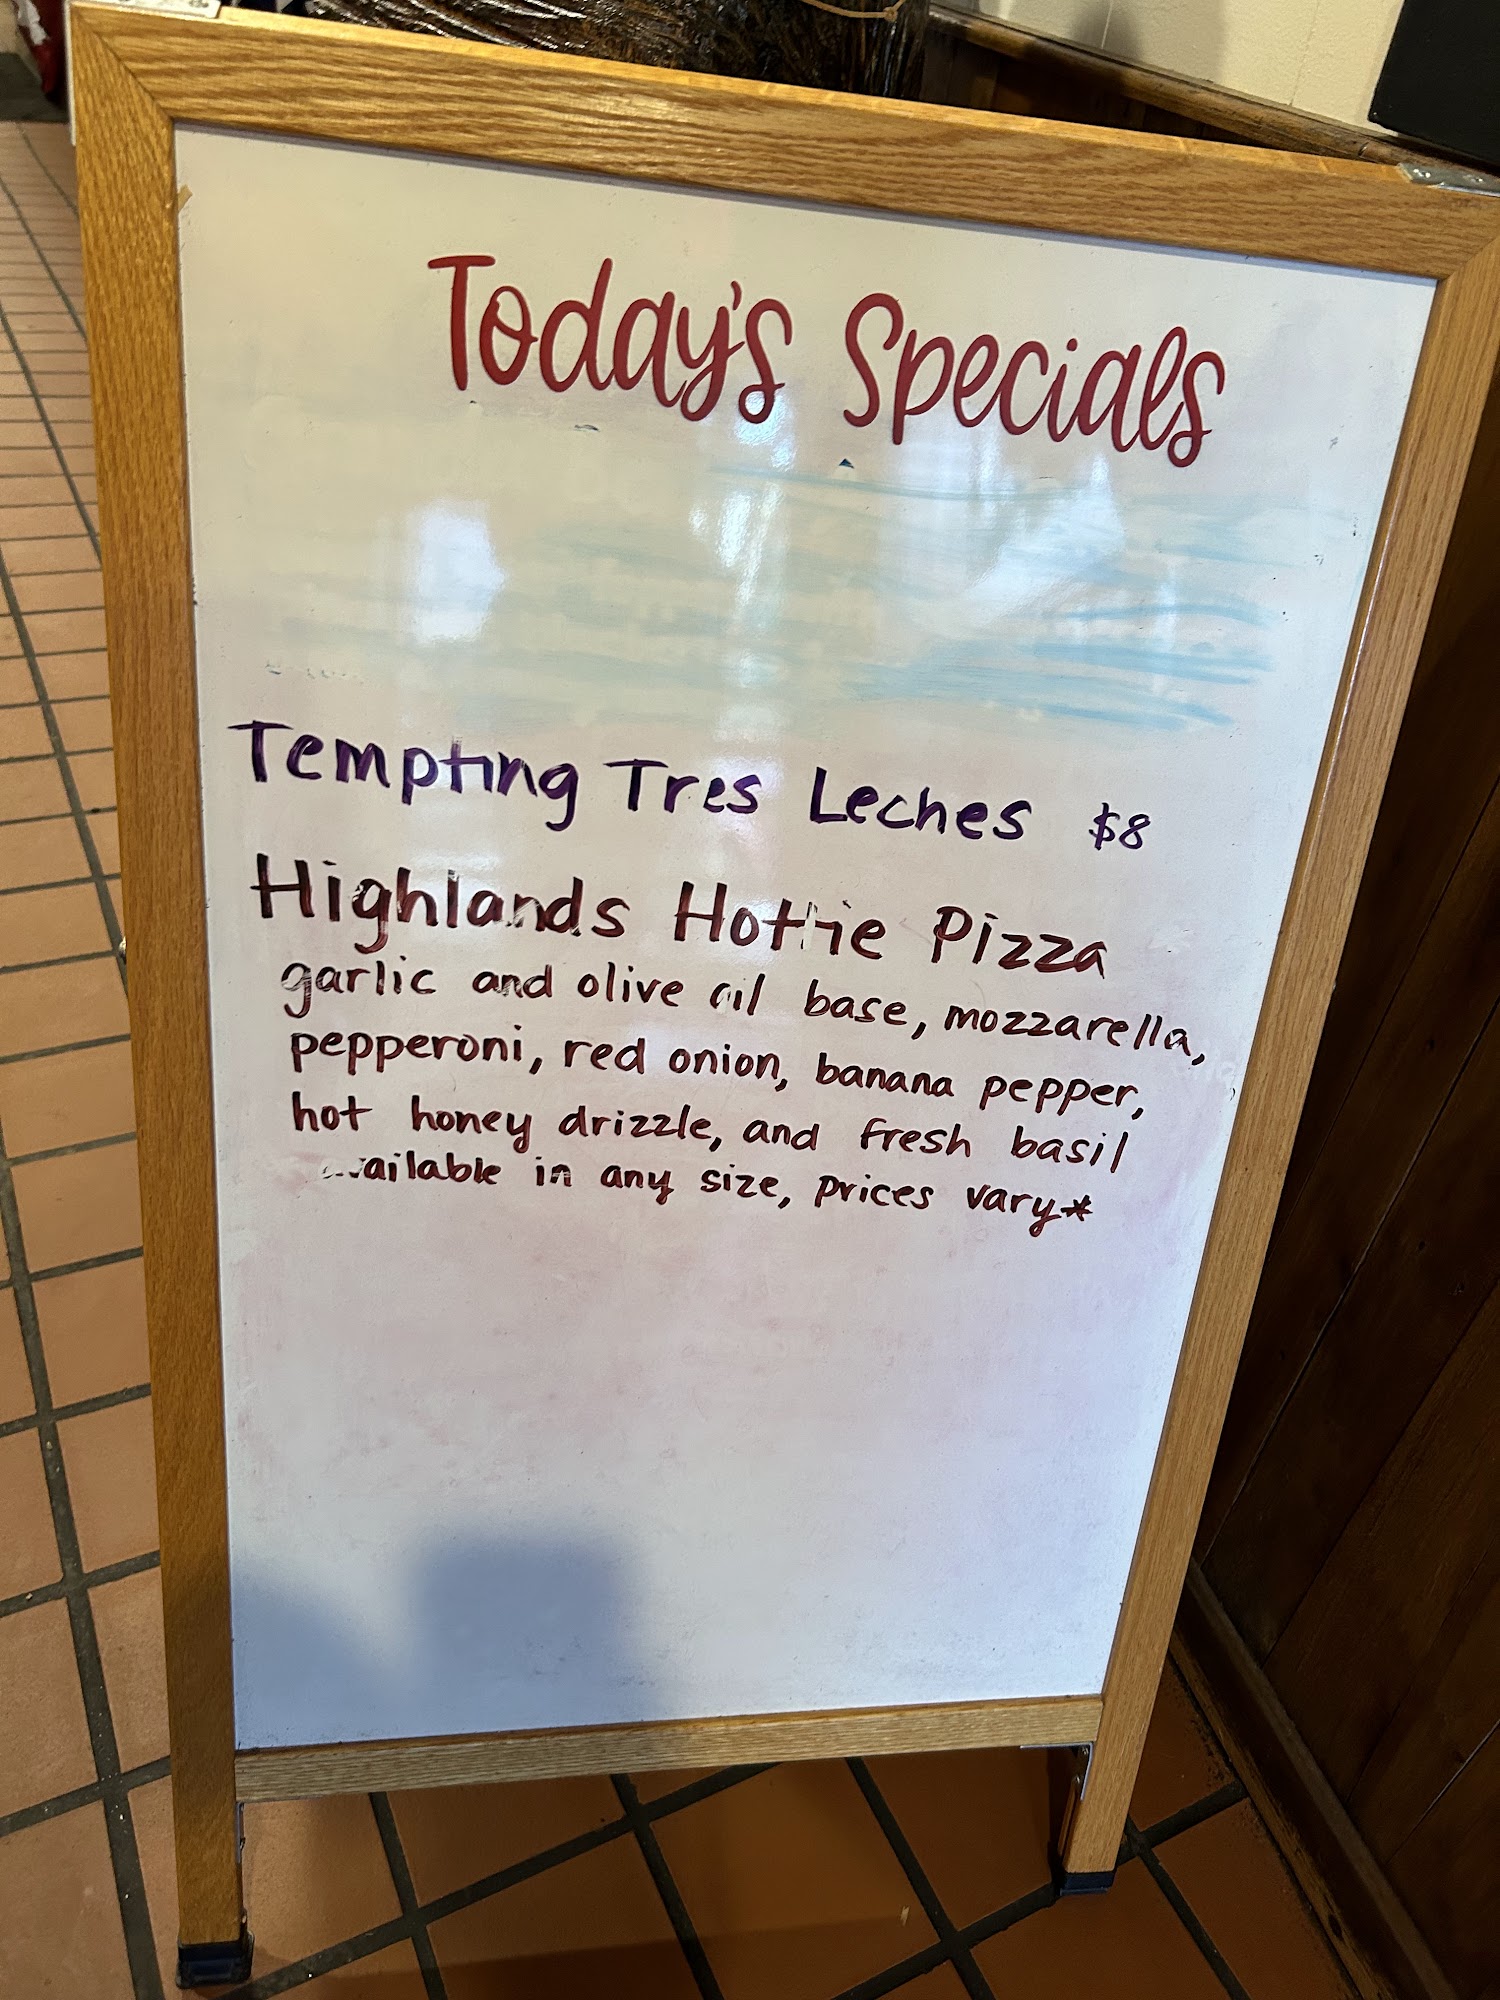 Today's Specials
Tempting Tres Leches $8
Highlands Hottie Pizza
garlic and olive oil base, mozzarella,
pepperoni, red onion, banana pepper,
hot honey drizzle, and fresh basil
available in any size, prices vary*